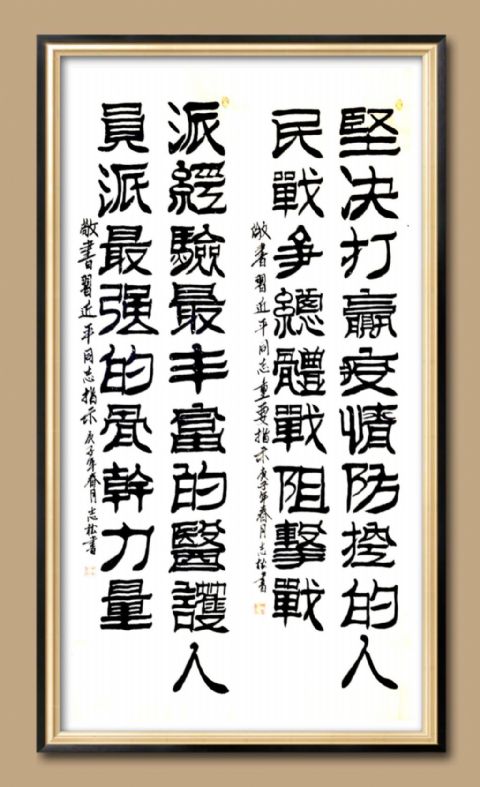 堅决打贏疫情防控的人
民戰争總體戰阻擊戰
敬書習近平同志重要指示庚子年春月志松書
派經驗最丰富的醫護人
員派最强的骨幹力量
敬書習近平同志指示庚子年春月志松書